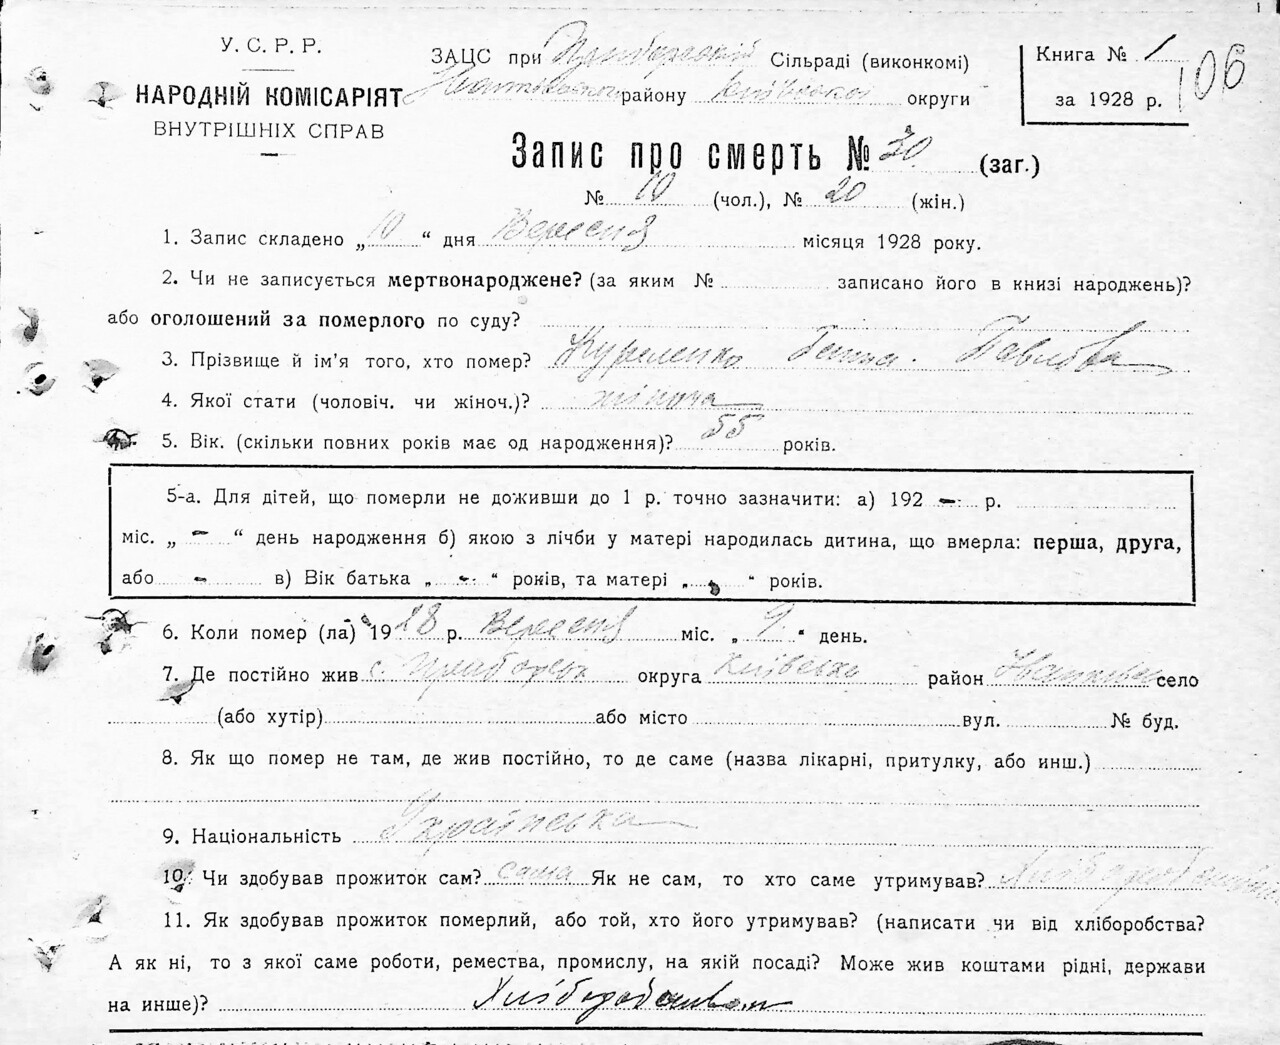 У. С. Р. Р.
НАРОДНІЙ КОМІСАРІЯТ
ВНУТРІШНІХ СПРАВ
ЗАЦС при Сільраді (виконкомі)
району Київської округи
Книга № 1
за 1928 р.
106
Запис про смерть № 30 (заг.)
№ 10 (чол.), № 20 (жін.)
1. Запис складено „ 10 “ дня Вересня місяця 1928 року.
2. Чи не записується мертвонароджене? (за яким № записано його в книзі народжень)?
або оголошений за померлого по суду?
3. Прізвище й ім'я того, хто помер? Куриленко Павлова
4. Якої стати (чоловіч. чи жіноч.)? жіноча
5. Вік. (скільки повних років має од народження)? 55 років.
5-а. Для дітей, що померли не доживши до 1 р. точно зазначити: а) 192 - р.
міс. „ - “ день народження б) якою з лічби у матері народилась дитина, що вмерла: перша, друга,
або - в) Вік батька „ - “ років, та матері „ - “ років.
6. Коли помер (ла) 1928 р. Вересня міс. „ 9 “ день.
7. Де постійно жив с. округа Київська район село
(або хутір) або місто вул. № буд.
8. Як що помер не там, де жив постійно, то де саме (назва лікарні, притулку, або инш.)
9. Національність Українська
10. Чи здобував прожиток сам? сама Як не сам, то хто саме утримував?
11. Як здобував прожиток померлий, або той, хто його утримував? (написати чи від хліборобства?
А як ні, то з якої саме роботи, ремества, промислу, на якій посаді? Може жив коштами рідні, держави
на инше)?